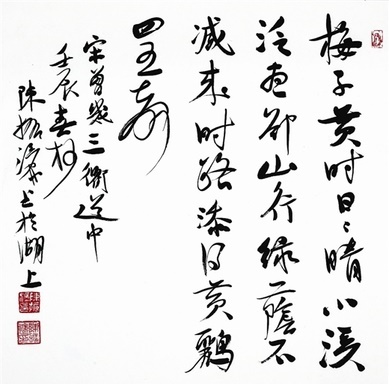 梅子黄时日日晴小溪
泛尽却山行绿荫不
减来时路添得黄鹂
四五声
宋曾几三衢道中
壬辰春杪
陈振濂书于湖上